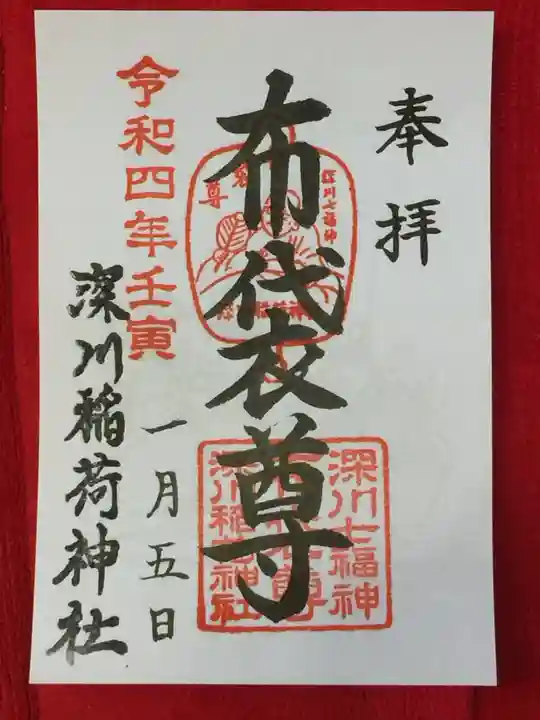 奉拝
布袋尊
深川七福神
布袋尊
深川稲荷神社
令和四年壬寅
一月五日
深川稲荷神社